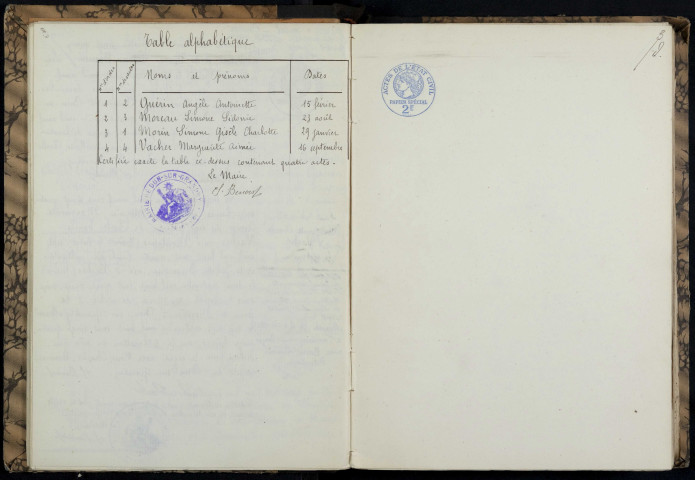 Table alphabétique
Noms et prénoms Dates
1 2 Guérin Angèle Antoinette 15 février
2 3 Moreau Simone Sidonie 23 août
3 1 Morin Simone Gisèle Charlotte 29 janvier
4 4 Vacher Marguerite Aimée 16 septembre
Certifiée exacte la table ci-dessus contenant quatre actes.
Le Maire
ACTES DE L'ÉTAT CIVIL
PAPIER SPÉCIAL
2F